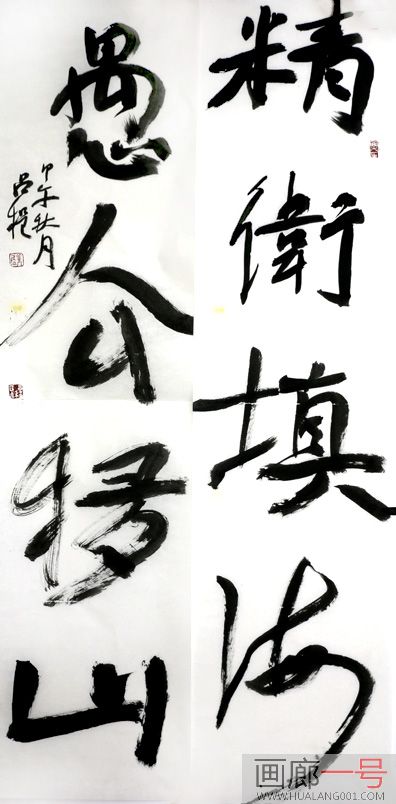 精衛填海
愚公移山
甲午秋月
画廊一号
WWW.HUALANG001.COM